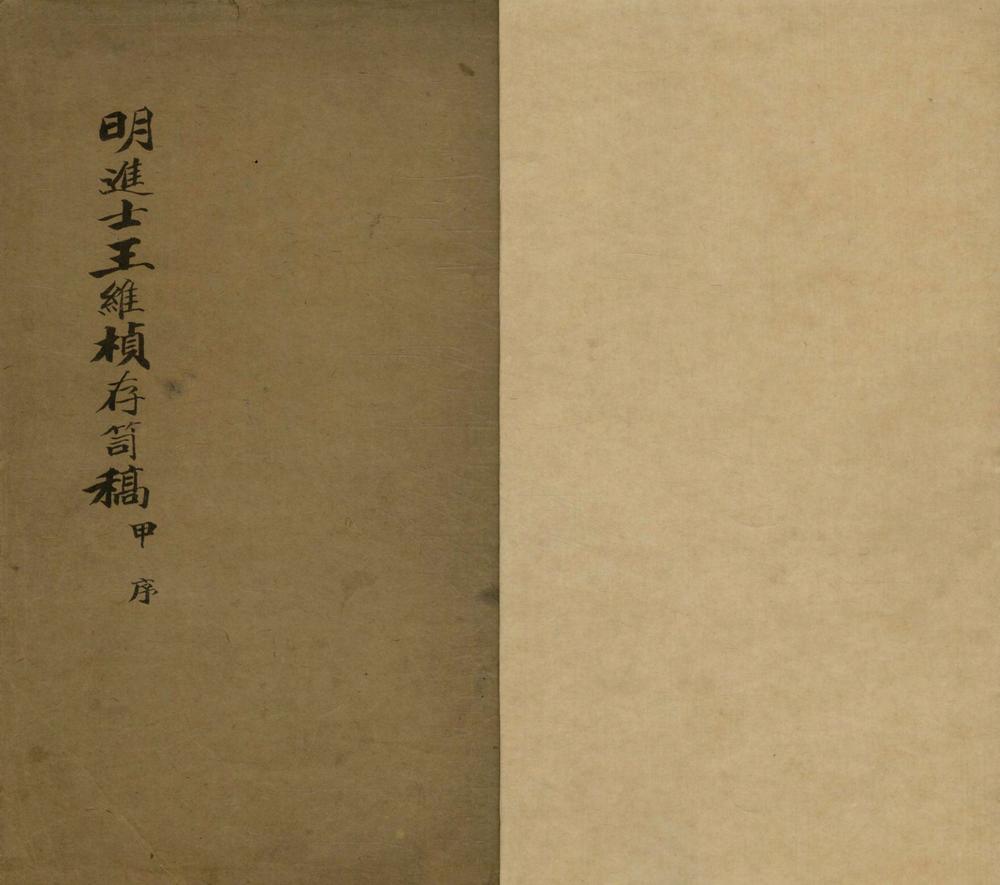 明進士王維楨存笥稿甲 序